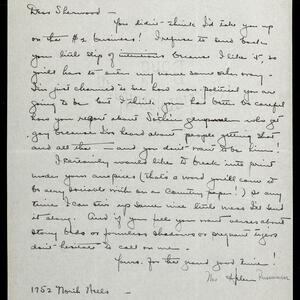 Dear Sherwood —
You didn't think I'd take you up
on the #2 business! I refuse to send back
your little slip of because I like it, so
you'll have to enter my name some other way.
I'm just charmed to see how non-political you are
going to be but I think you has better be careful
how you report about gentlemen who get
gay because I've heard about people getting shot
and all that — and you don't want to be him!
I certainly would like to break into print
under your auspices (that's a word you'll come it
to very seriously with on a Country paper!) At any
time I can turn up some nice little mess I'll send
it along. And if you feel you want verses about
stony beds or formless shadows or
don't hesitate to call on me.
Yours. for the grand good time!
Mrs Helen
1752 North Wells —